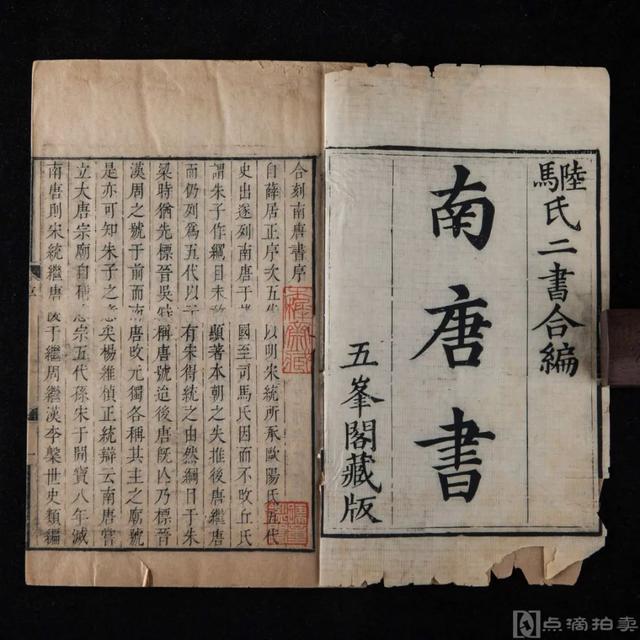 陸馬氏二書合編
南唐書
五峯閣藏版
合刻南唐書序
自薛居正序次五代以明宋統所承歐陽氏五代
史出遂列南唐于國至司馬氏因而不改丘氏
謂朱子作綱目未顯著本朝之失推後唐繼唐
而仍列為五代以有朱得統之由然綱目于朱
梁時猶先標晉吳稱唐號迨後唐旣亡乃標晉
漢周之號于前而南唐改元獨各稱其主之廟號
是亦可知朱子之矣楊維楨正統辯云南唐嘗
立大唐宗廟自稱宗五代孫宋于開寶八年滅
南唐則宋統繼唐于繼周繼漢李槃世史類編
点滴拍卖